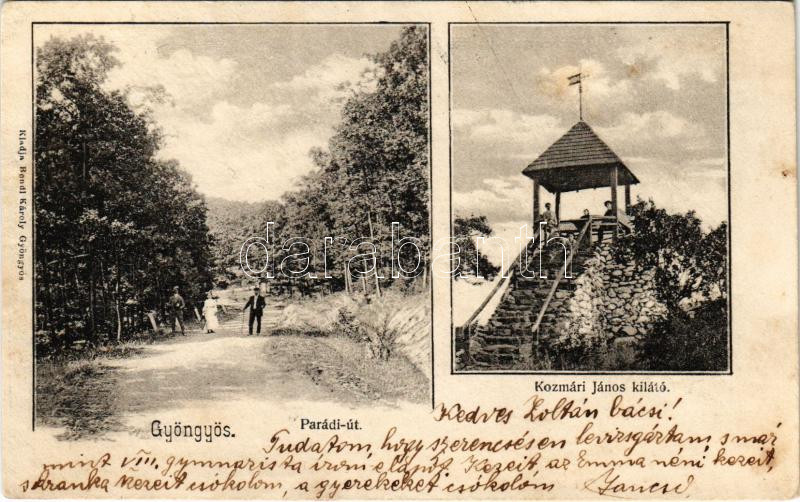 Kiadja Bendl Károly Gyöngyös
darabanth
Kozmári János kilátó.
Gyöngyös.
Parádi-út.
Kedves Zoltán bácsi!
Tudatom, hogy szerencsésen levizsgáztam s már
mint VIII. gymnazista irom Kezeit, az Emma néni kezeit,
kezeit csókolom, a gyerekeket csókolom Jancsi